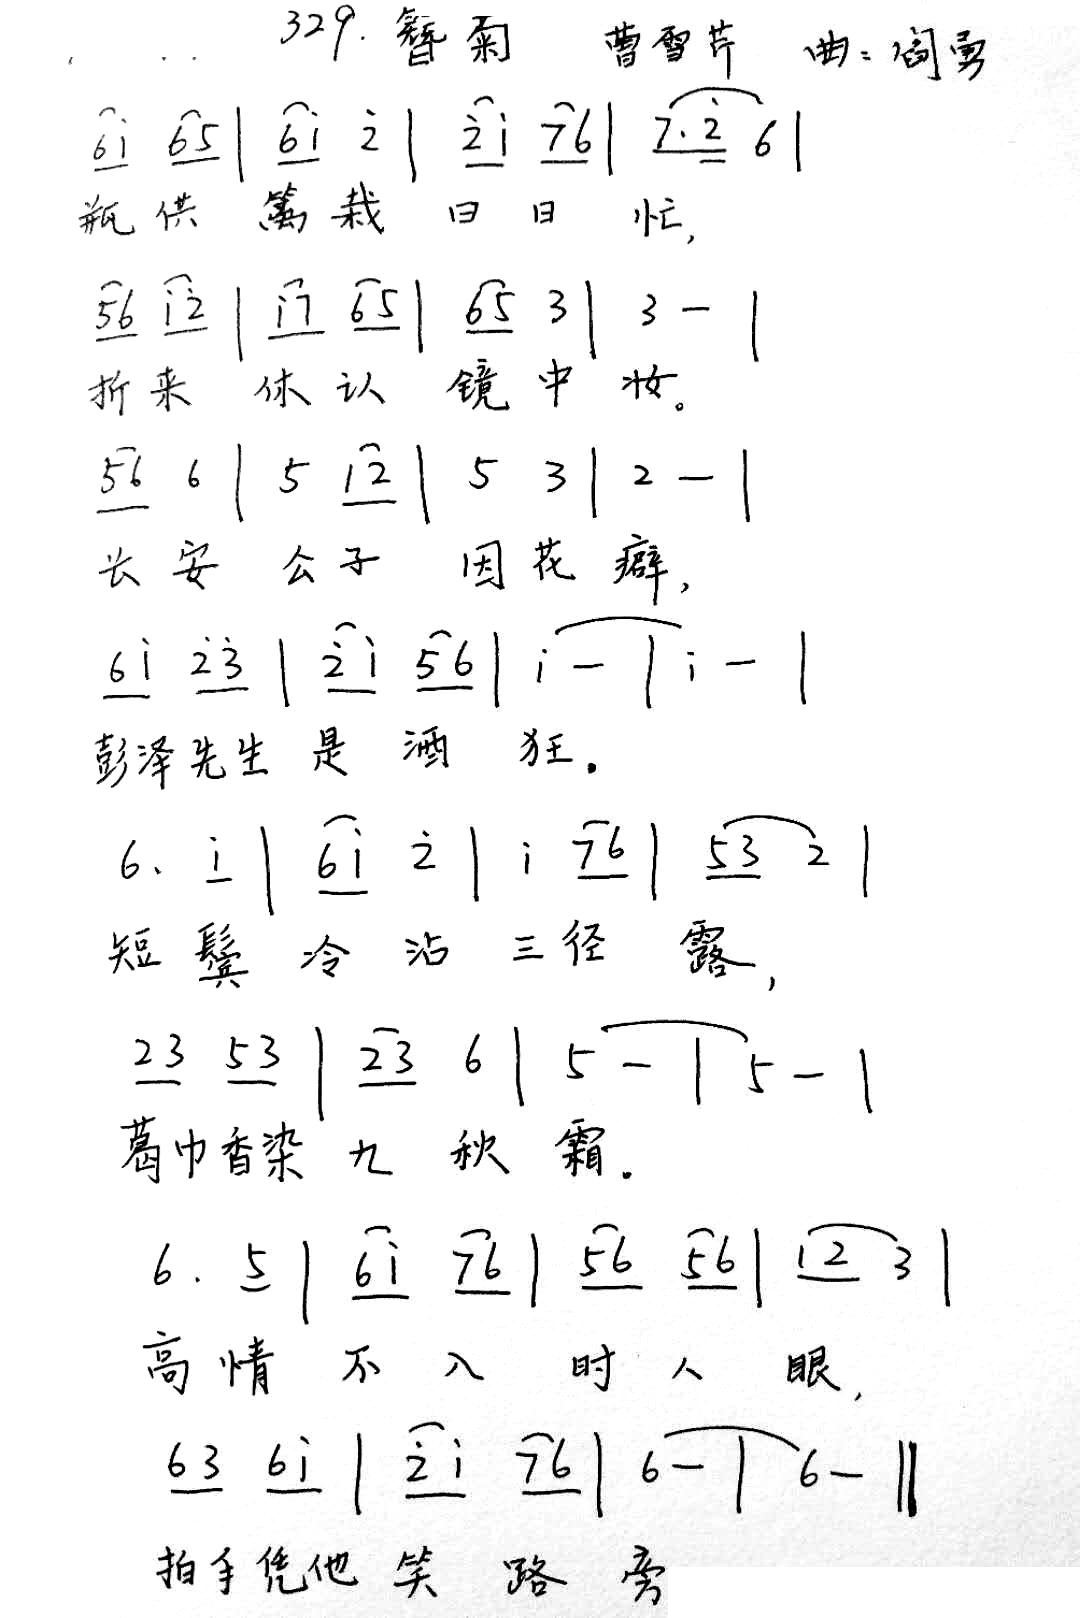 329. 簪菊 曹雪芹 曲:阎勇
6i̇ 65 | 6i̇ 2̇ | 2̇i̇ 76 | 7.2̇ 6 |
瓶供篱栽日日忙,
56 i̇2̇ | i̇7 65 | 65 3 | 3 - |
折来休认镜中妆。
56 6 | 5 12 | 5 3 | 2 - |
长安公子因花癖,
6i̇ 2̇3̇ | 2̇i̇ 56 | i̇ - | i̇ - |
彭泽先生是酒狂.
6. i̇ | 6i̇ 2̇ | i̇ 76 | 53 2 |
短鬓冷沾三径露,
23 53 | 23 6 | 5 - | 5 - |
葛巾香染九秋霜.
6. 5 | 6i̇ 76 | 56 56 | 12 3 |
高情不入时人眼,
63 6i̇ | 2̇i̇ 76 | 6 - | 6 - ‖
拍手凭他笑路旁